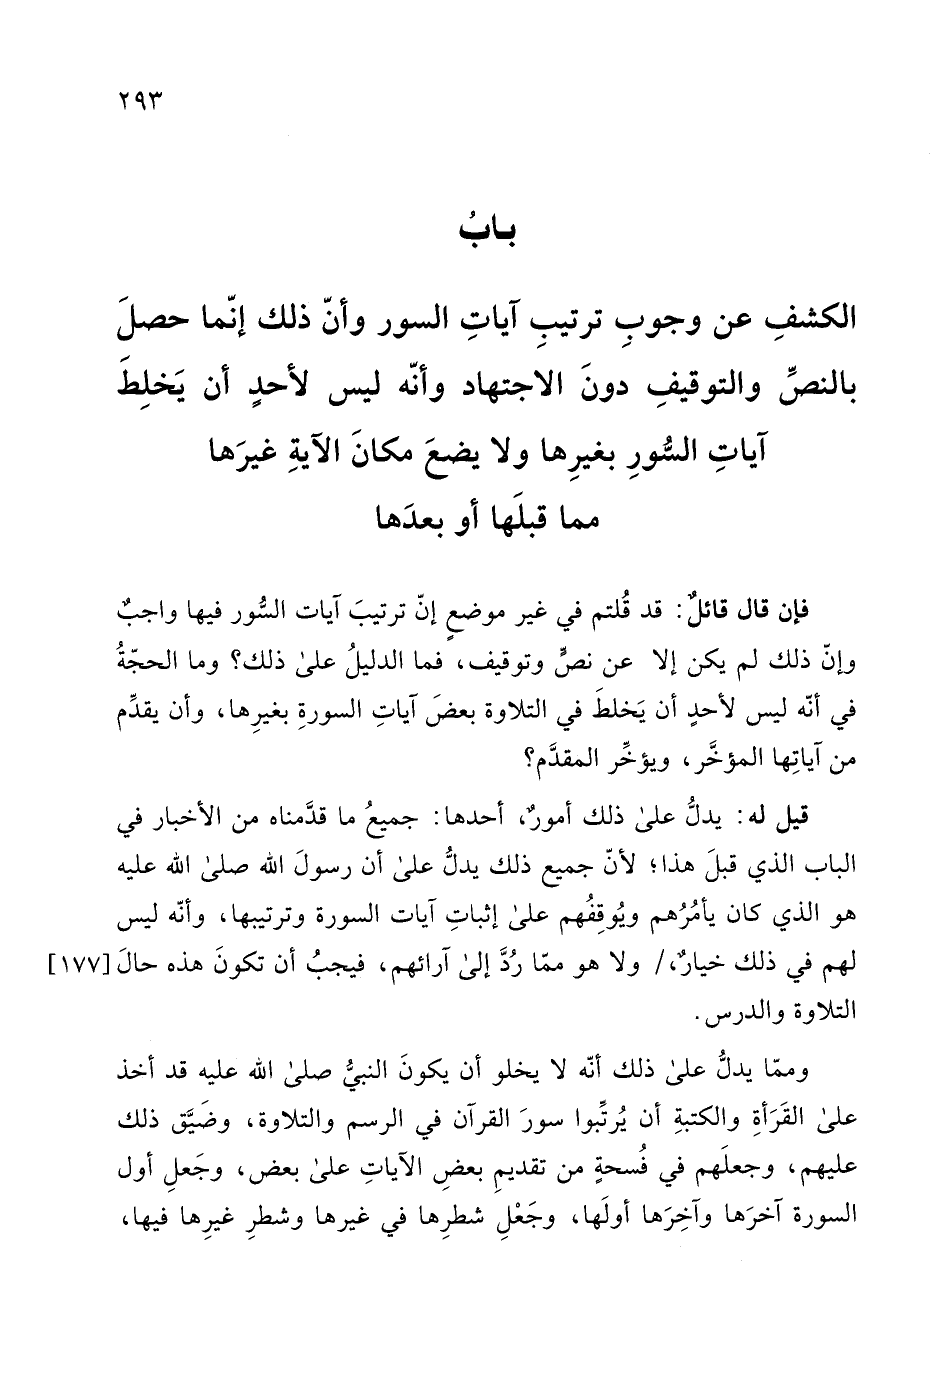 ٢٩٣
بابُ
الكشفِ عن وجوبِ ترتيبِ آياتِ السور وأنّ ذلك إنّما حصلَ
بالنصِّ والتوقيفِ دونَ الاجتهاد وأنّه ليس لأحدٍ أن يَخلِطَ
آياتِ السُّورِ بغيرِها ولا يضعَ مكانَ الآيةِ غيرَها
مما قبلَها أو بعدَها
فإن قال قائلٌ: قد قُلتم في غير موضعٍ إنّ ترتيبَ آيات السُّور فيها واجبٌ
وإنّ ذلك لم يكن إلا عن نصٍّ وتوقيف، فما الدليلُ علىٰ ذلك؟ وما الحجّةُ
في أنّه ليس لأحدٍ أن يَخلطَ في التلاوة بعضَ آياتِ السورةِ بغيرِها، وأن يقدِّم
من آياتِها المؤخَّر، ويؤخِّر المقدَّم؟
قيل له: يدلُّ علىٰ ذلك أمورٌ، أحدها: جميعُ ما قدَّمناه من الأخبار في
الباب الذي قبلَ هذا؛ لأنّ جميع ذلك يدلُّ علىٰ أن رسولَ الله صلىٰ الله عليه
هو الذي كان يأمُرُهم ويُوقِفُهم علىٰ إثباتِ آيات السورة وترتيبها، وأنّه ليس
لهم في ذلك خيارٌ،/ ولا هو ممّا رُدَّ إلىٰ آرائهم، فيجبُ أن تكونَ هذه حالَ [١٧٧]
التلاوة والدرس.
وممّا يدلُّ علىٰ ذلك أنّه لا يخلو أن يكونَ النبيُّ صلىٰ الله عليه قد أخذ
علىٰ القَرَأةِ والكتبةِ أن يُرتِّبوا سورَ القرآن في الرسم والتلاوة، وضَيَّق ذلك
عليهم، وجعلَهم في فُسحةٍ من تقديمِ بعضِ الآياتِ علىٰ بعض، وجَعلِ أول
السورة آخرَها وآخِرَها أولَها، وجَعْلِ شطرِها في غيرها وشطرِ غيرِها فيها،